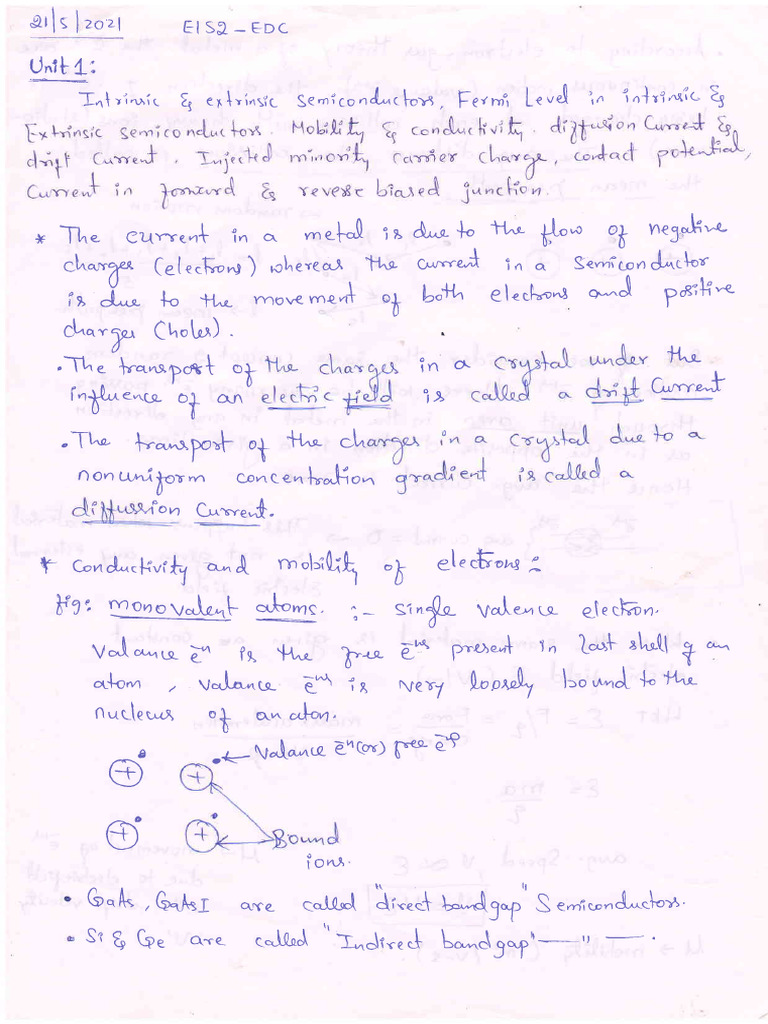 21/5/2021 E1S2-EDC
Unit 1:
Intrinsic & extrinsic semiconductors, Fermi Level in intrinsic &
Extrinsic semiconductors. Mobility & conductivity. diffusion Current &
drift Current. Injected minority carrier charge, contact potential,
Current in forward & reverse biased junction.
* The current in a metal is due to the flow of negative
charges (electrons) whereas the current in a semiconductor
is due to the movement of both electrons and positive
charges (holes).
• The transport of the charges in a crystal under the
influence of an electric field is called a drift Current
• The transport of the charges in a crystal due to a
nonuniform concentration gradient is called a
diffussion Current.
* Conductivity and mobility of electrons:-
fig: monovalent atoms. :- single valence electron.
Valance e̅ⁿ is the free e̅ⁿˢ present in last shell of an
atom, valance e̅ⁿˢ is very loosely bound to the
nucleus of an atom.
+ + ← Valance e̅ⁿ (or) free e̅ⁿ
+ + Bound
ions.
• GaAs, GaAsI are called "direct bandgap" Semiconductors.
• Si & Ge are called "Indirect bandgap" —— " ——.